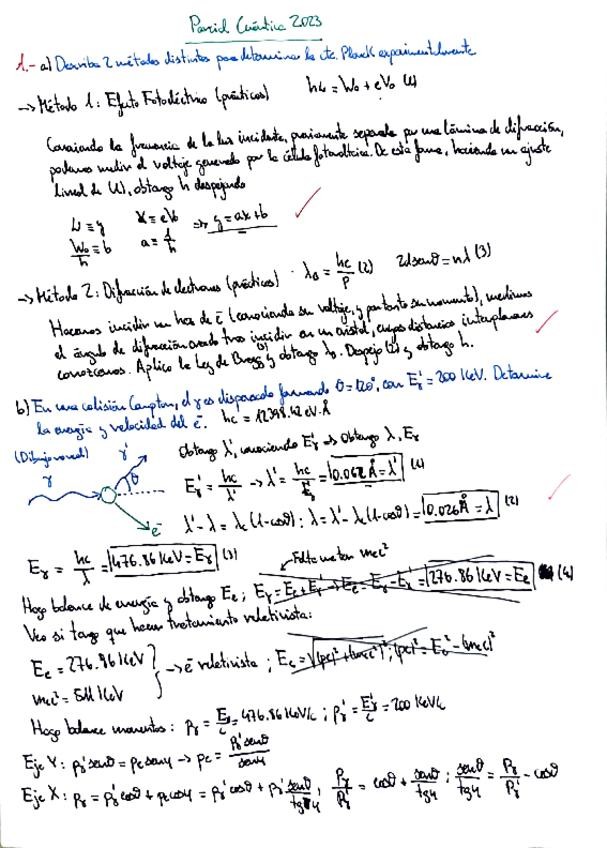 Parcial Cuántica 2023
1.- a) Describa 2 métodos distintos para determinar la cte. Planck experimentalmente
→ Método 1: Efecto Fotoeléctrico (prácticas) hν = W₀ + eV₀ (1)
Conociendo la frecuencia de la luz incidente, previamente separada por una lámina de difracción,
podemos medir el voltaje generado por la célula fotovoltaica. De esta forma, haciendo un ajuste
lineal de (1), obtengo h despejando
ν ≡ y x ≡ eV₀ ⇒ y = ax + b
W₀/h ≡ b a = 1/h
→ Método 2: Difracción de electrones (prácticas) · λ_B = hc/p (2) 2d senθ = nλ (3)
Hacemos incidir un haz de e⁻ (conociendo su voltaje, y por tanto su momento), medimos
el ángulo de difracción creado tras incidir en un cristal, cuyas distancias interplanares
conozcamos. Aplico la Ley de Bragg y obtengo λ_B. Despejo (2) y obtengo h.
b) En una colisión Compton, el γ es dispersado formando θ = 120°, con E'γ = 200 KeV. Determine
la energía y velocidad del e⁻. hc = 12398.42 eV·Å
(Dibujo visual) γ' Obtengo λ', conociendo E'γ ⇒ Obtengo λ, Eγ
γ θ E'γ = hc/λ' → λ' = hc/E'γ = 0.062 Å = λ' (1)
e⁻ λ' - λ = λc (1 - cosθ) ; λ = λ' - λc (1 - cosθ) = 0.026 Å = λ (2)
Eγ = hc/λ = 476.86 KeV = Eγ (3) Falta meter mec²
Hago balance de energía y obtengo Ee ; Eγ = Ee + E'γ → Ee = Eγ - Eγ' = 276.86 KeV = Ee (4)
Veo si tengo que hacer tratamiento relativista:
Ee = 276.86 KeV
mec² = 511 KeV } → e⁻ relativista ; Ee = √(pc)² + (mec²)² ; (pc)² = Ee² - (mec)²
Hago balance momentos : pγ = Eγ/c = 476.86 KeV/c ; pγ' = E'γ/c = 200 KeV/c
Eje Y : pγ' senθ = pe senφ → pe = pγ' senθ / senφ
Eje X : pγ = pγ' cosθ + pe cosφ = pγ' cosθ + pγ' senθ/tgφ ; pγ/pγ' = cosθ + senθ/tgφ ; senθ/tgφ = pγ/pγ' - cosθ